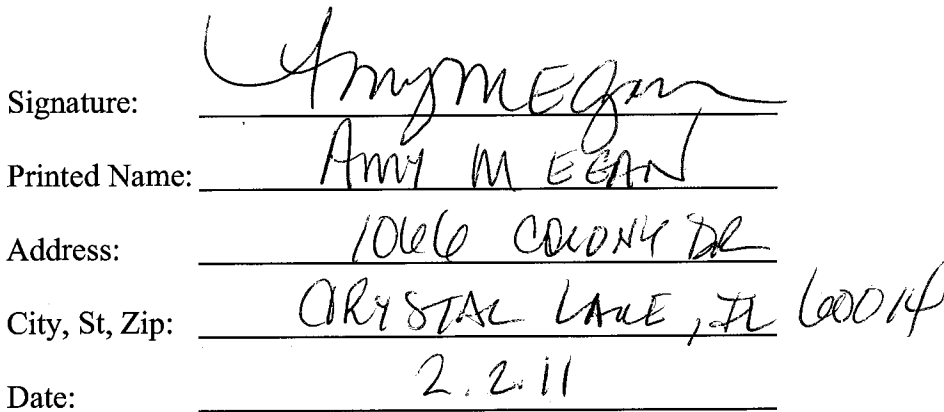 Signature: Amy M Egan
Printed Name: AMY M EGAN
Address: 1066 COLONY DR
City, St, Zip: CRYSTAL LAKE, IL 60014
Date: 2.2.11